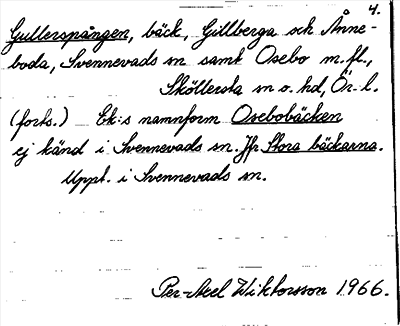 4.
Gullerspången, bäck, Gillberga och Ånne-
boda, Svennevads sn samt Osebo m.fl.,
Sköllersta sn o. hd, Ör. l.
(forts.) Ek:s namnform Osebobäcken
ej känd i Svennevads sn. Jfr Stora bäckarna.
Uppt. i Svennevads sn.
Per-Axel Wiktorsson 1966.